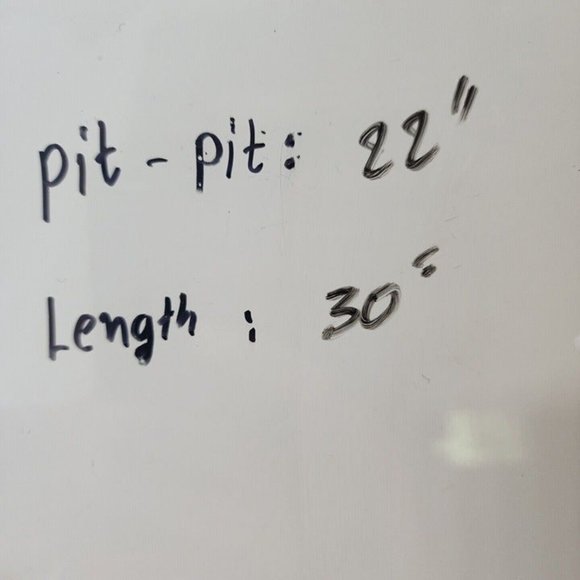 pit - pit: 22"
Length : 30"